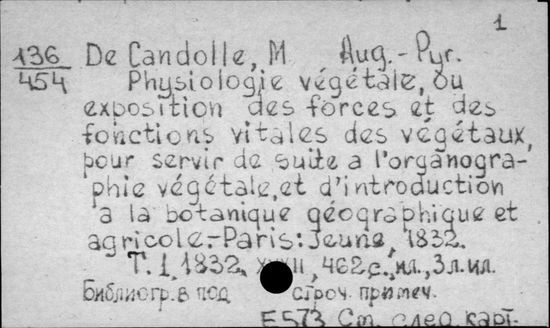 1
136
454
De Candolle, M Aug.-Pyr.
Physiologie végétale, ou
exposition des forces et des
fonctions vitales des végétaux,
pour servir de suite a l'organogra-
phie végétale, et d'introduction
a la botanique géographique et
agricole.-Paris: Jeune, 1832.
T. 1, 1832. XXXII, 462с., ил., 3л. ил.
Библиогр. в под строч. примеч.
E573 См. след. карт.